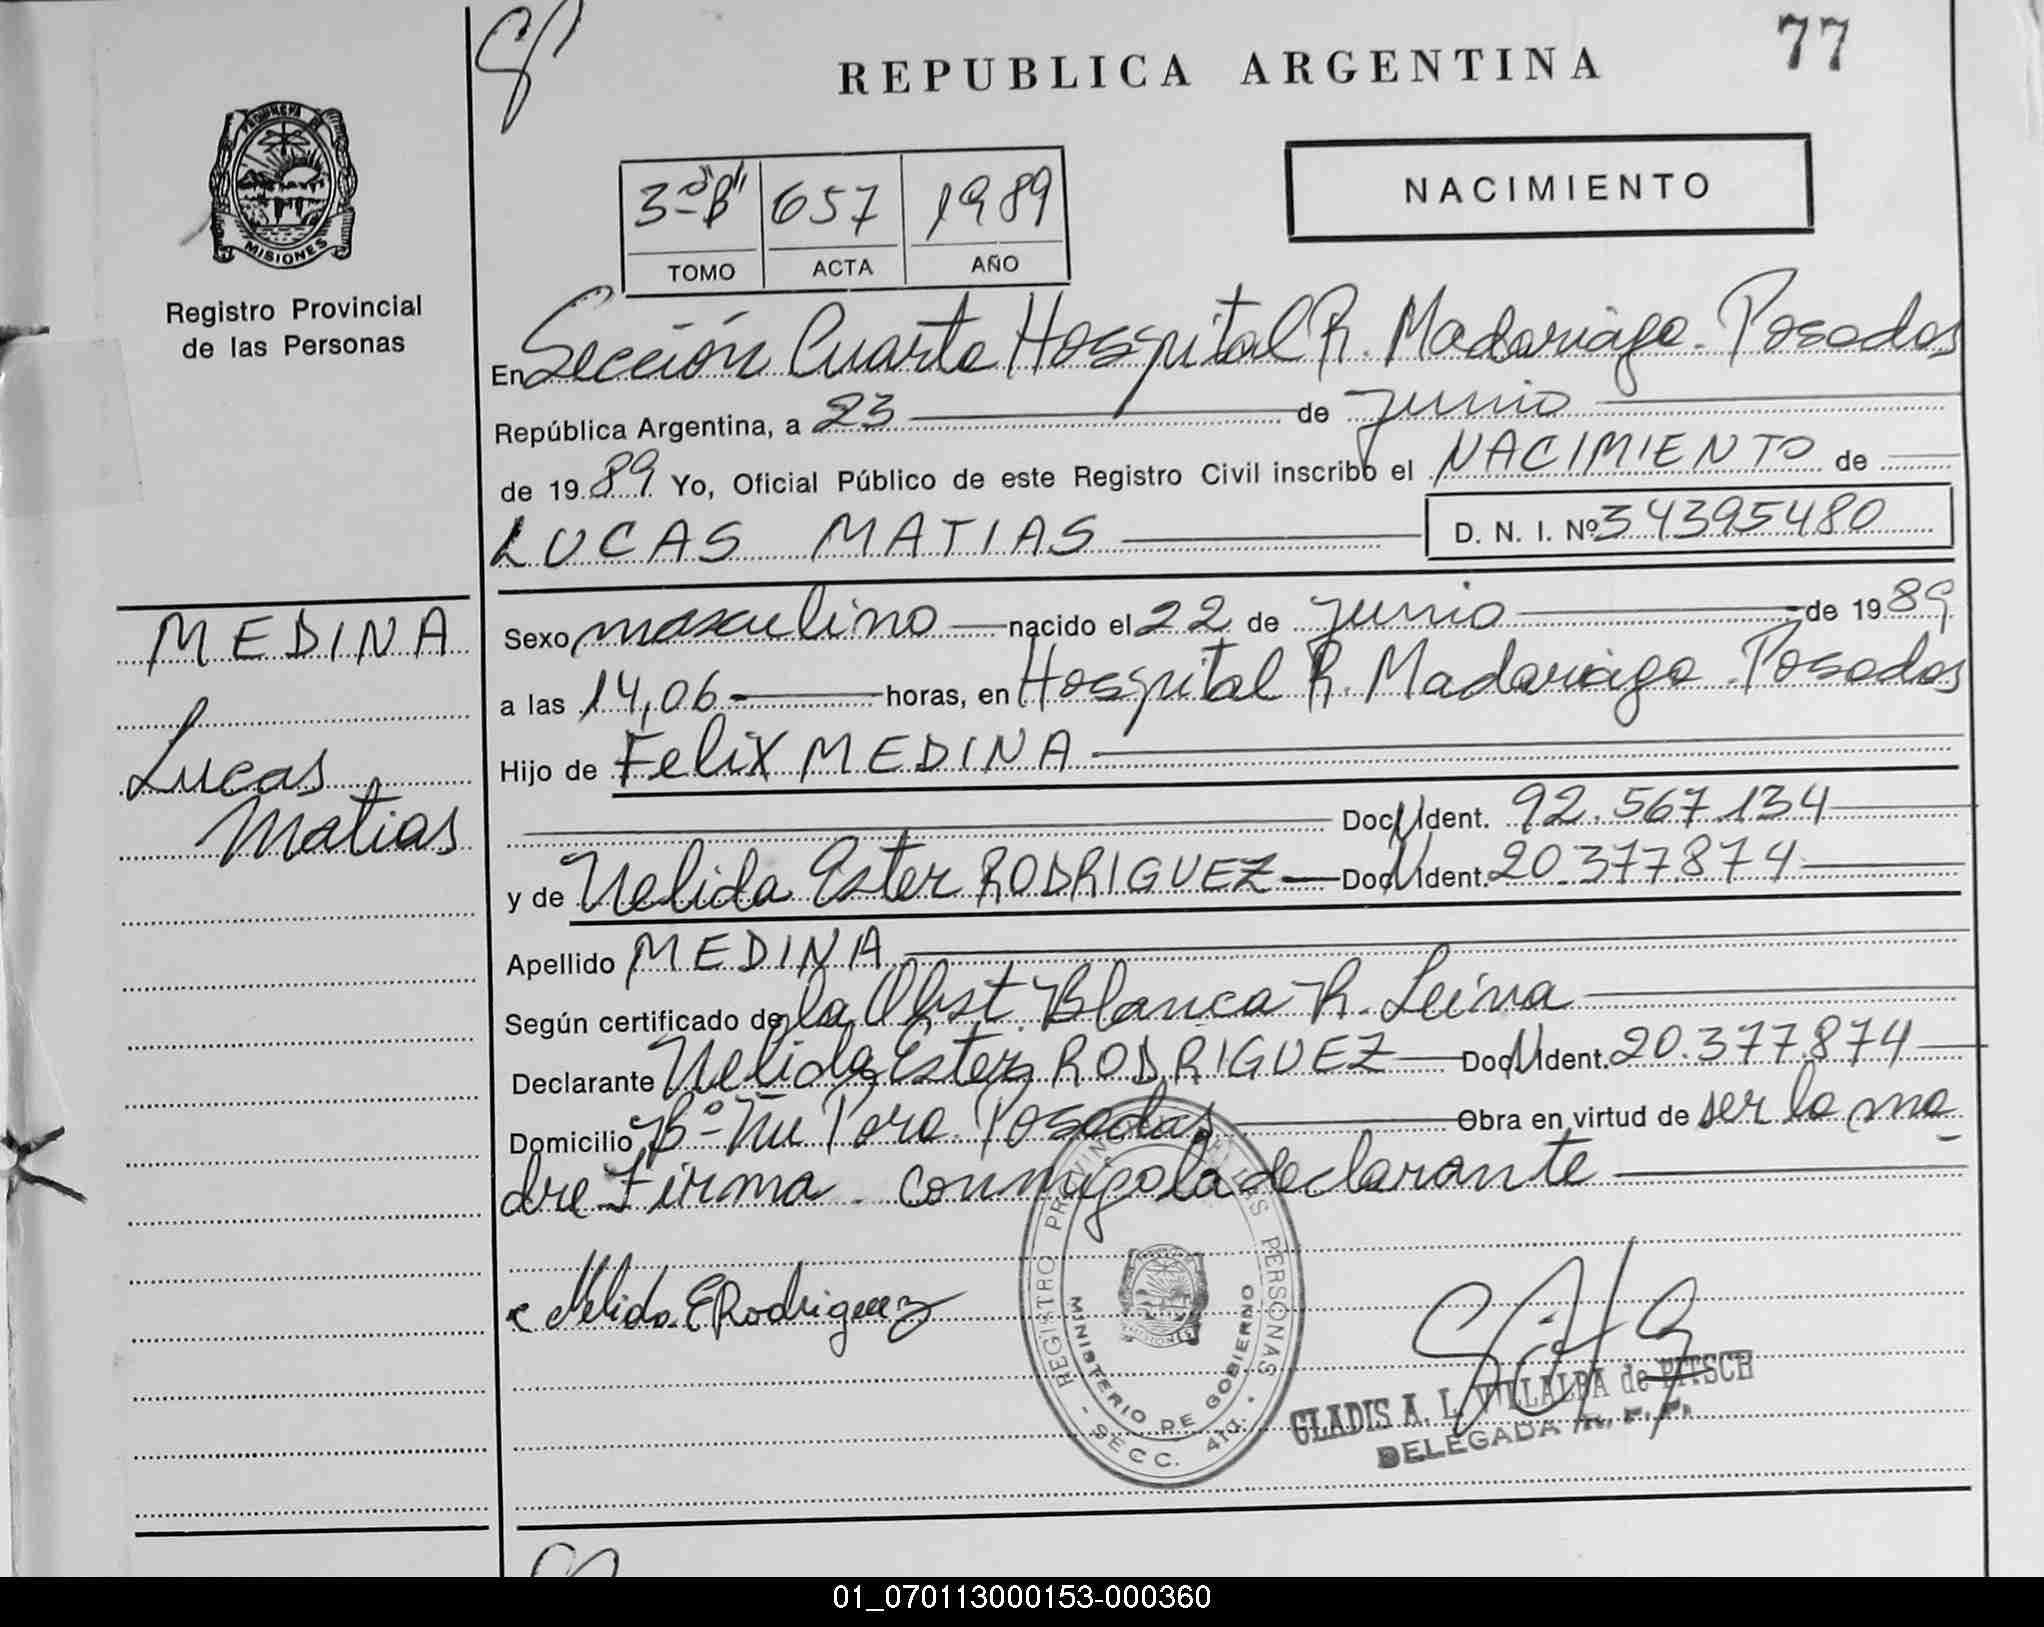 77
REPUBLICA ARGENTINA
NACIMIENTO
3º "B" 657 1989
TOMO ACTA AÑO
MISIONES
Registro Provincial
de las Personas
En Sección Cuarta Hospital R. Madariaga. Posadas
República Argentina, a 23 de junio
de 1989 Yo, Oficial Público de este Registro Civil inscribo el NACIMIENTO de
LUCAS MATIAS D. N. I. Nº 34395480
MEDINA
Lucas
Matias
Sexo masculino nacido el 22 de junio de 1989
a las 14,06 horas, en Hospital R. Madariaga. Posadas
Hijo de Felix MEDINA
Doc. N Ident. 92.567.134
y de Nelida Ester RODRIGUEZ Doc. N Ident. 20.377.874
Apellido MEDINA
Según certificado de la Obst. Blanca R. Leiva
Declarante Nelida Ester RODRIGUEZ Doc. N Ident. 20.377.874
Domicilio Bº Ñu Pora. Posadas Obra en virtud de ser la ma
dre Firma conmigo la declarante
Nelida E Rodriguez
REGISTRO PROVINCIAL DE LAS PERSONAS
MINISTERIO DE GOBIERNO
- SECC. 4ta. -
GLADIS A. L. VILLALBA de PITSCH
DELEGADA R. P. P.
01_070113000153-000360